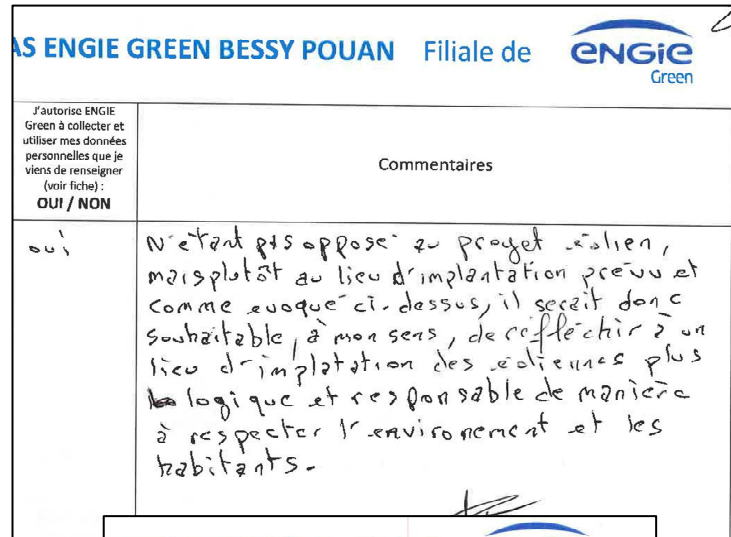 AS ENGIE GREEN BESSY POUAN Filiale de
ENGIE
Green
J'autorise ENGIE
Green à collecter et
utiliser mes données
personnelles que je
viens de renseigner
(voir fiche) :
OUI / NON
Commentaires
oui
N'étant pas opposé au projet éolien,
mais plutôt au lieu d'implantation prévu et
comme evoqué ci-dessus, il serait donc
souhaitable, à mon sens, de réfléchir à un
lieu d'implatation des éoliennes plus
logique et responsable de manière
à respecter l'environement et les
habitants.